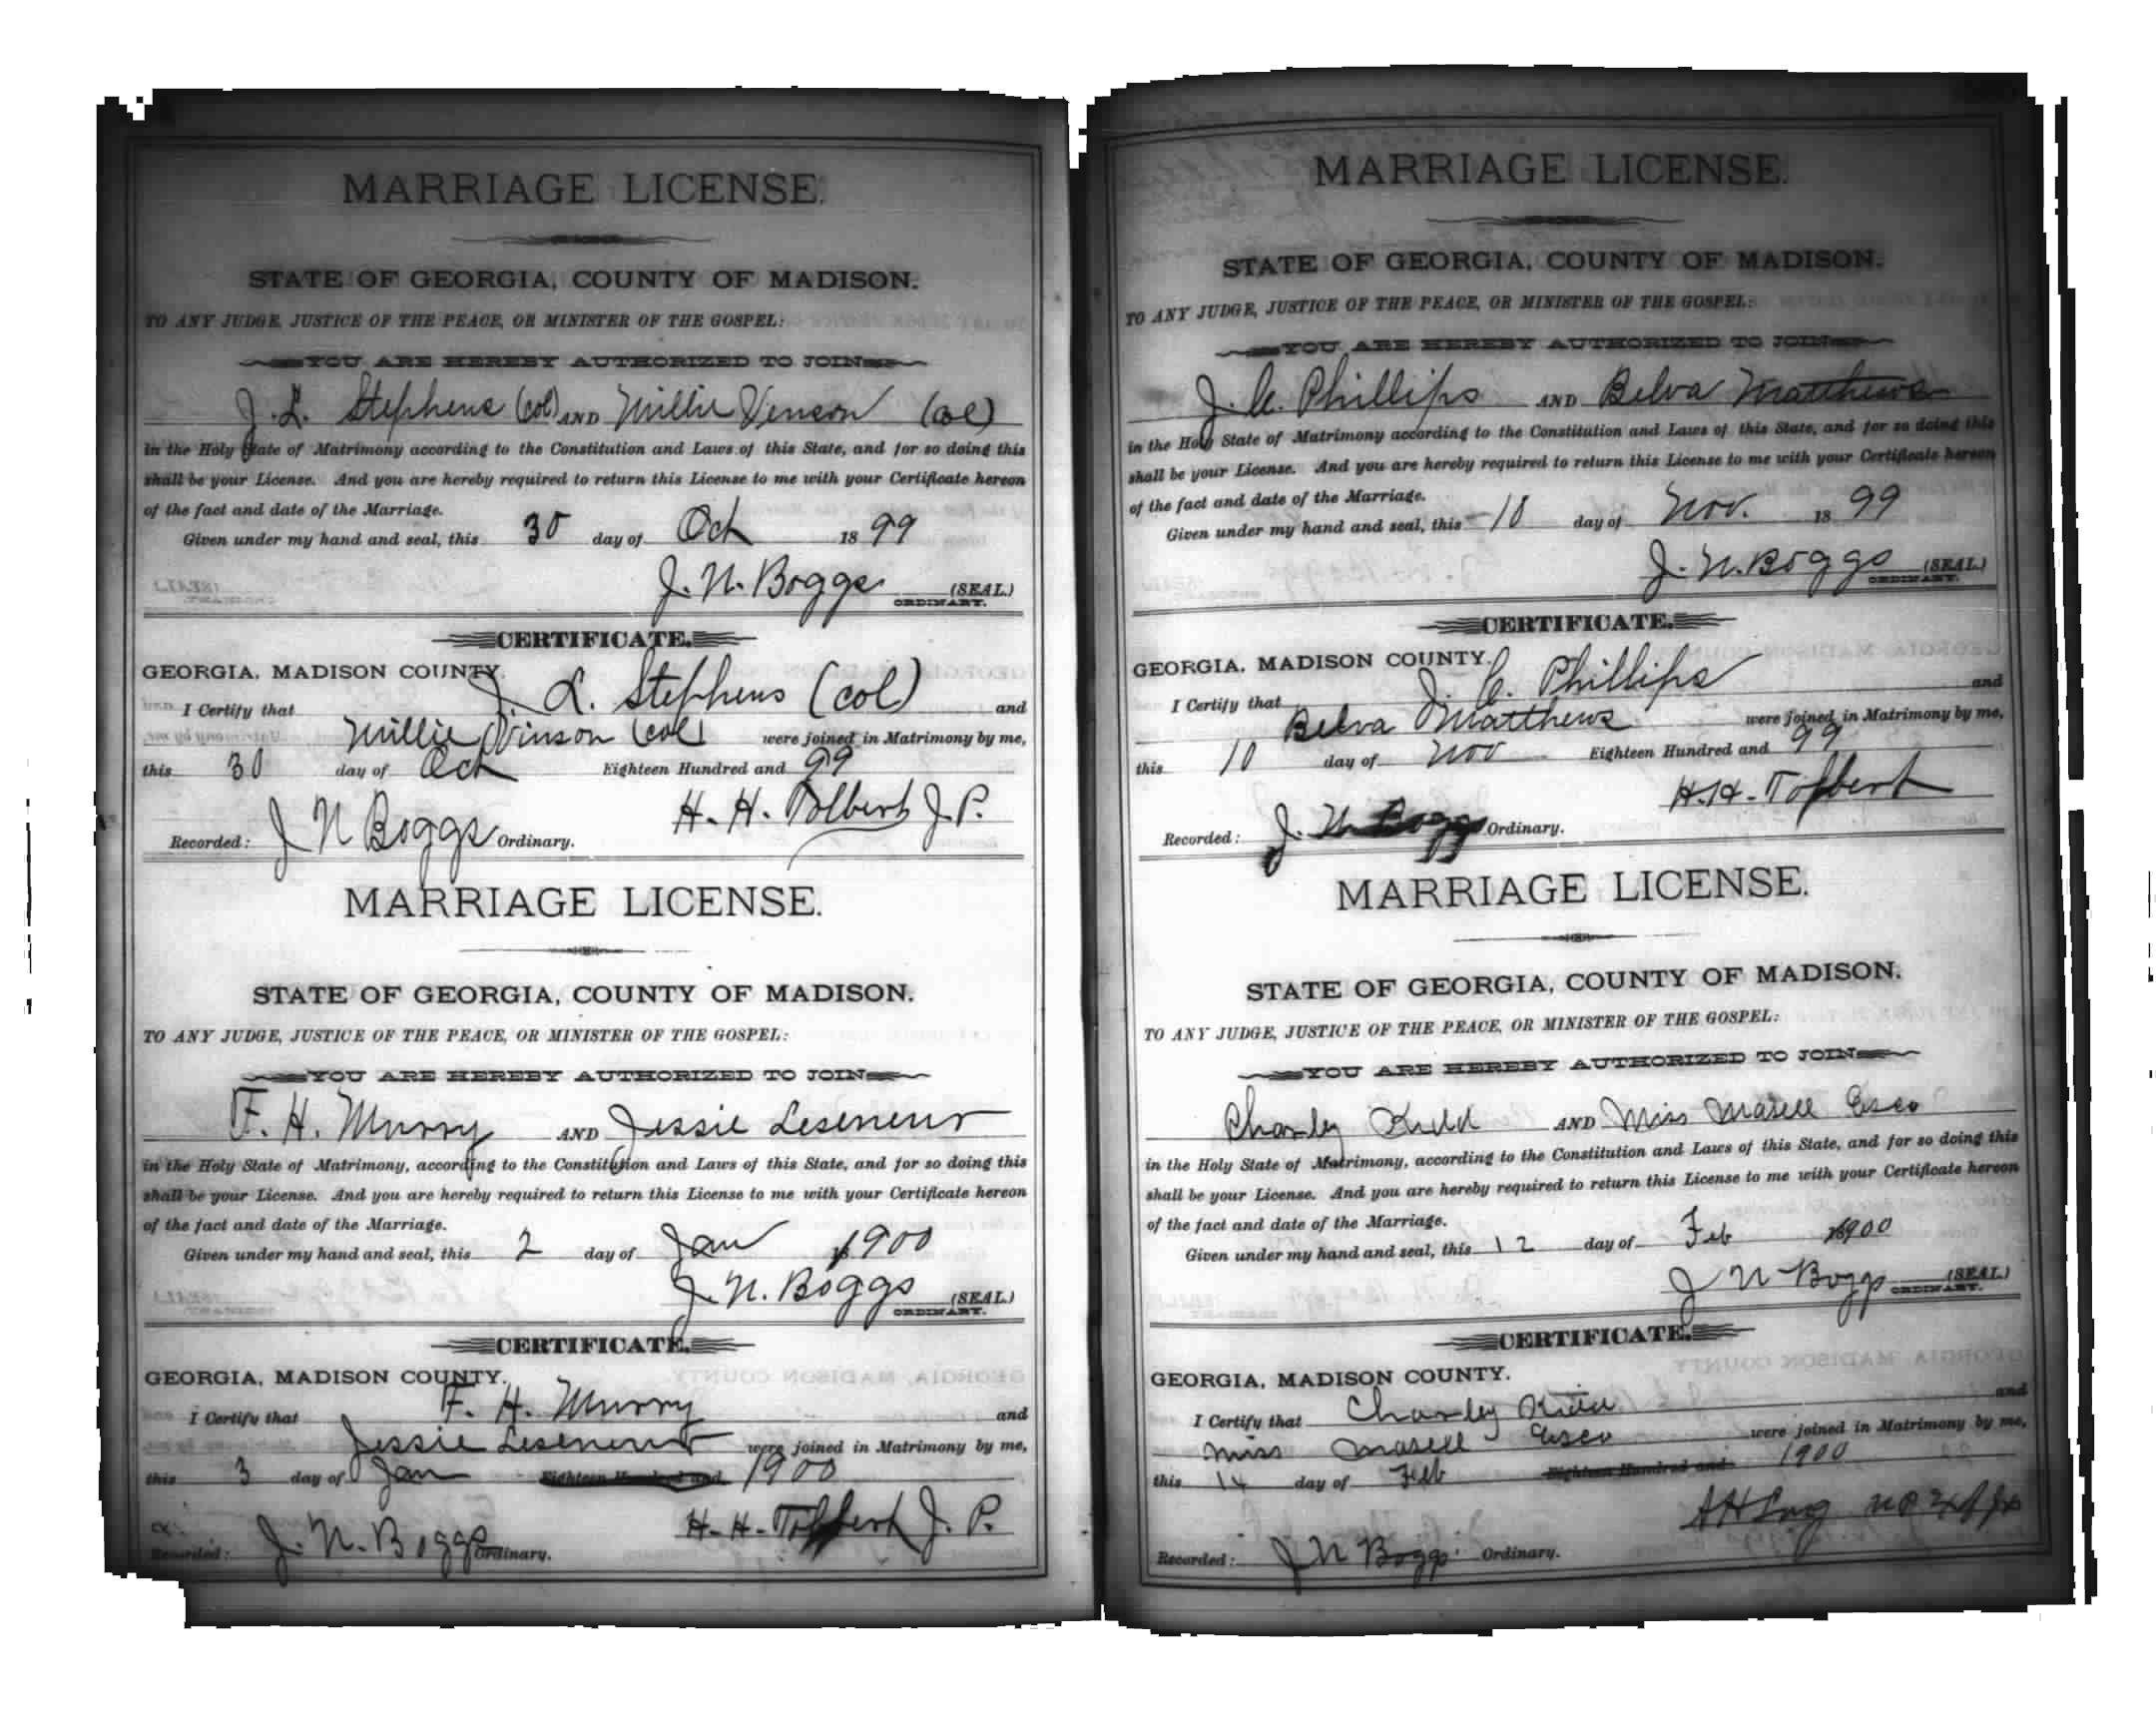 MARRIAGE LICENSE.
STATE OF GEORGIA, COUNTY OF MADISON.
TO ANY JUDGE, JUSTICE OF THE PEACE, OR MINISTER OF THE GOSPEL:
YOU ARE HEREBY AUTHORIZED TO JOIN
J. L. Stephens (col) AND Millie Venson (col)
in the Holy State of Matrimony according to the Constitution and Laws of this State, and for so doing this
shall be your License. And you are hereby required to return this License to me with your Certificate hereon
of the fact and date of the Marriage.
Given under my hand and seal, this 30 day of Oct 1899
J. N. Boggs (SEAL.)
ORDINARY.
CERTIFICATE.
GEORGIA, MADISON COUNTY.
I Certify that J. L. Stephens (col) and
Millie Vinson (col) were joined in Matrimony by me,
this 30 day of Oct Eighteen Hundred and 99
H. H. Tolbert J. P.
Recorded: J N Boggs Ordinary.
MARRIAGE LICENSE.
STATE OF GEORGIA, COUNTY OF MADISON.
TO ANY JUDGE, JUSTICE OF THE PEACE, OR MINISTER OF THE GOSPEL:
YOU ARE HEREBY AUTHORIZED TO JOIN
F. H. Murry AND Jessie Leseneur
in the Holy State of Matrimony, according to the Constitution and Laws of this State, and for so doing this
shall be your License. And you are hereby required to return this License to me with your Certificate hereon
of the fact and date of the Marriage.
Given under my hand and seal, this 2 day of Jan 1900
J. N. Boggs (SEAL.)
ORDINARY.
CERTIFICATE.
GEORGIA, MADISON COUNTY.
I Certify that F. H. Murry and
Jessie Leseneur were joined in Matrimony by me,
this 3 day of Jan Eighteen Hundred and 1900
H. H. Tolbert J. P.
Recorded: J. N. Boggs Ordinary.
MARRIAGE LICENSE.
STATE OF GEORGIA, COUNTY OF MADISON.
TO ANY JUDGE, JUSTICE OF THE PEACE, OR MINISTER OF THE GOSPEL:
YOU ARE HEREBY AUTHORIZED TO JOIN
J. C. Phillips AND Belva Matthews
in the Holy State of Matrimony according to the Constitution and Laws of this State, and for so doing this
shall be your License. And you are hereby required to return this License to me with your Certificate hereon
of the fact and date of the Marriage.
Given under my hand and seal, this 10 day of Nov. 1899
J. N. Boggs (SEAL.)
ORDINARY.
CERTIFICATE.
GEORGIA, MADISON COUNTY.
I Certify that J. C. Phillips and
Belva Matthews were joined in Matrimony by me,
this 10 day of Nov Eighteen Hundred and 99
H. H. Tolbert
Recorded: J. N. Boggs Ordinary.
MARRIAGE LICENSE.
STATE OF GEORGIA, COUNTY OF MADISON.
TO ANY JUDGE, JUSTICE OF THE PEACE, OR MINISTER OF THE GOSPEL:
YOU ARE HEREBY AUTHORIZED TO JOIN
Charley Kidd AND Miss Masell Esco
in the Holy State of Matrimony, according to the Constitution and Laws of this State, and for so doing this
shall be your License. And you are hereby required to return this License to me with your Certificate hereon
of the fact and date of the Marriage.
Given under my hand and seal, this 12 day of Feb 1900
J N Boggs (SEAL.)
ORDINARY.
CERTIFICATE.
GEORGIA, MADISON COUNTY.
I Certify that Charley Kidd and
Miss Masell Esco were joined in Matrimony by me,
this 14 day of Feb Eighteen Hundred and 1900
Recorded: J N Boggs Ordinary.